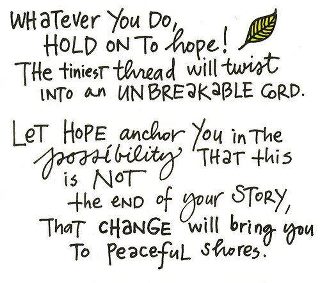 WHaTeVer You Do,
HOLD ON To hope!
THe tiniest thread will twist
INTO an UNBReaKaBLE CORD.
LeT HOPE anchor You in The
possibility THAT this
is NOT
the END of your STORY,
THaT CHANGE will bring you
To PeacefuL shores.